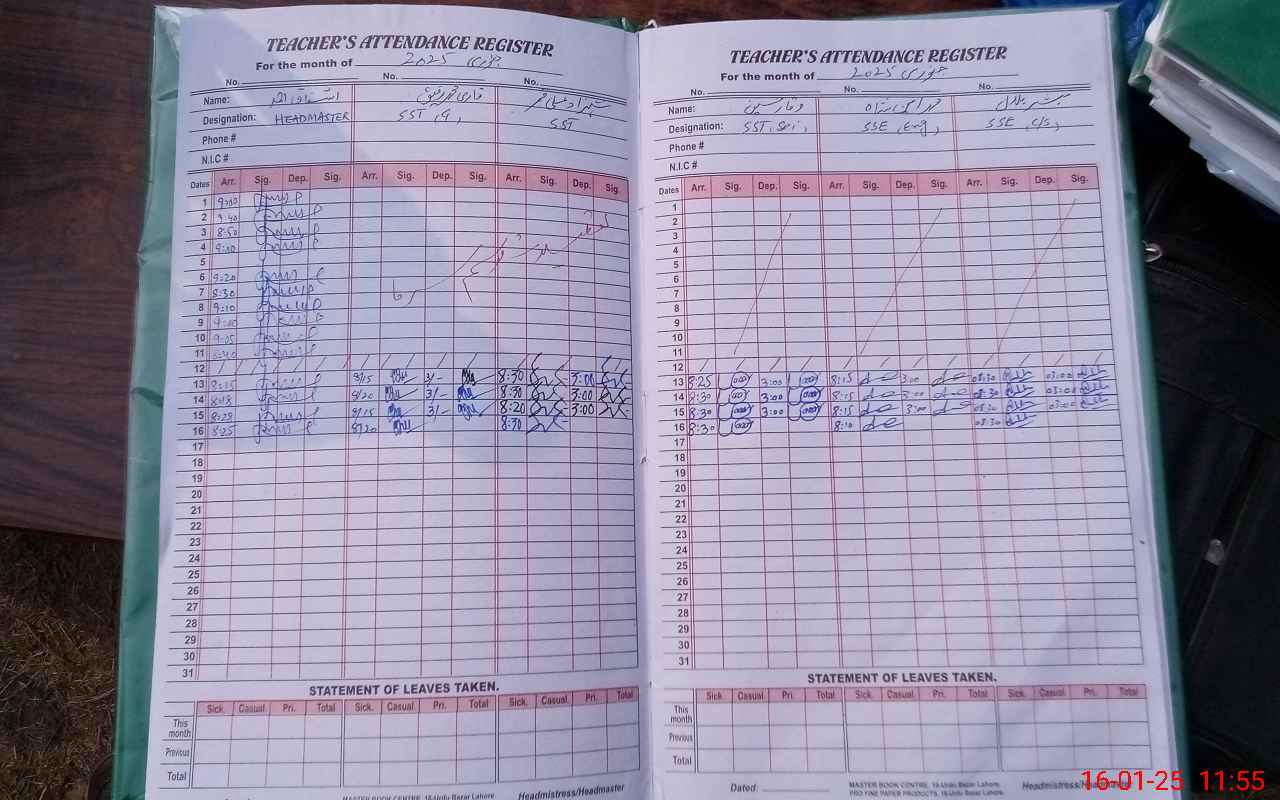 TEACHER'S ATTENDANCE REGISTER
For the month of جنوری 2025
No. No. No.
Name: اشتیاق احمد قاری محمد رفیق
Designation: HEADMASTER SST, SST
Phone #
N.I.C #
Dates Arr. Sig. Dep. Sig. Arr. Sig. Dep. Sig. Arr. Sig. Dep. Sig.
1 9:00
2 9:40
3 8:50
4 9:00
5
6 9:20
7 8:30
8 9:10
9 9:00
10 9:05
11
12
13 8:15 8/15 3/- 8:30 3:00
14 8:18 8/20 3/- 8:30 3:00
15 8:28 8/15 3/- 8:20 3:00
16 8:25 8/20 8:30
17
18
19
20
21
22
23
24
25
26
27
28
29
30
31
STATEMENT OF LEAVES TAKEN.
Sick. Casual. Pri. Total Sick. Casual. Pri. Total Sick. Casual. Pri. Total
This month
Previous
Total
MASTER BOOK CENTRE, 18-Urdu Bazar Lahore. Headmistress/Headmaster
TEACHER'S ATTENDANCE REGISTER
For the month of جنوری 2025
No. No. No.
Name: وقار حسین مبشر بلال
Designation: SST, Sci, SSE, Eng, SSE, C/S,
Phone #
N.I.C #
Dates Arr. Sig. Dep. Sig. Arr. Sig. Dep. Sig. Arr. Sig. Dep. Sig.
1
2
3
4
5
6
7
8
9
10
11
12
13 8:25 3:00 8:15 3:00 08:30 03:00
14 8:30 3:00 8:15 3:00 08:30 03:00
15 8:30 3:00 8:15 3:00 08:30 03:00
16 8:30 8:10 08:30
17
18
19
20
21
22
23
24
25
26
27
28
29
30
31
STATEMENT OF LEAVES TAKEN.
Sick. Casual. Pri. Total Sick. Casual. Pri. Total Sick. Casual. Pri. Total
This month
Previous
Total
Dated: MASTER BOOK CENTRE, 18-Urdu Bazar Lahore. Headmistress/Headmaster
PRO FINE PAPER PRODUCTS, 18-Urdu Bazar Lahore.
16-01-25 11:55